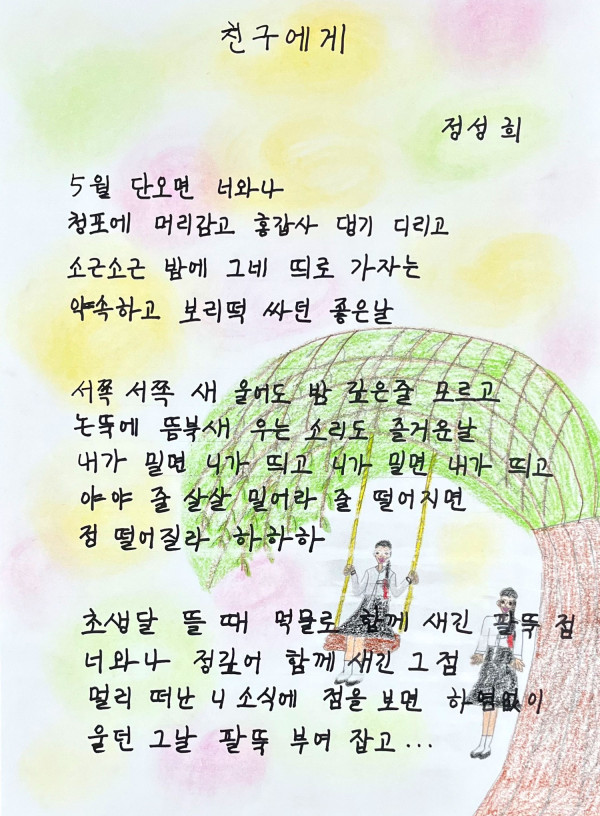 친구에게
정성희
5월 단오면 너와나
청포에 머리감고 홍갑사 댕기 디리고
소근소근 밤에 그네 띄로 가자는
약속하고 보리떡 싸던 좋은날
서쪽 서쪽 새 울어도 밤 깊은줄 모르고
논뚝에 뜸북새 우는 소리도 즐거운날
내가 밀면 니가 띄고 니가 밀면 내가 띄고
야야 줄 살살 밀어라 줄 떨어지면
정 떨어질라 하하하
초생달 뜰 때 먹물로 함께 새긴 팔뚝 점
너와나 정깊어 함께 새긴 그점
멀리 떠난 니 소식에 점을 보면 하염없이
울던 그날 팔뚝 부여 잡고...